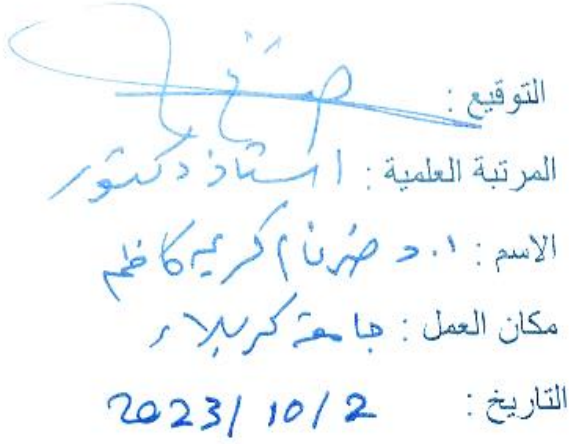 التوقيع :
المرتبة العلمية : استاذ دكتور
الاسم : ا. د ضرغام كريم كاظم
مكان العمل : جامعة كربلاء
التاريخ : 2023/ 10/ 2